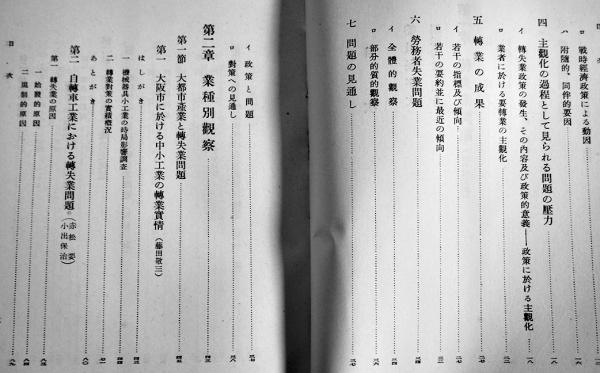 ロ 戰時經濟政策による動因
ハ 附隨的、同件的要因
四 主觀化の過程として見られる問題の壓力
イ 轉失業政策の發生、その内容及び政策的意義――政策に於ける主觀化
ロ 業者に於ける要轉業の主觀化
五 轉業の成果
イ 若干の指標及び傾向
ロ 若干の要約並に最近の傾向
六 勞務者失業問題
イ 全體的觀察
ロ 部分的質的觀察
七 問題の見通し
イ 政策と問題
ロ 對策への見通し
第二章 業種別觀察
第一節 大都市產業と轉失業問題
第一 大阪市に於ける中小工業の轉業實情（藤田敬三）
はしがき
一 機械器具小工業の時局影響調査
二 轉業對業の實績概況
あとがき
第二 自轉車工業における轉失業問題（赤松要 小出保治）
第一 轉失業の原因
一 始發的原因
二 規制的原因
目次